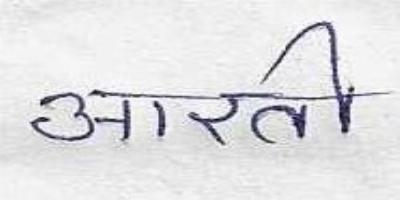 आरती